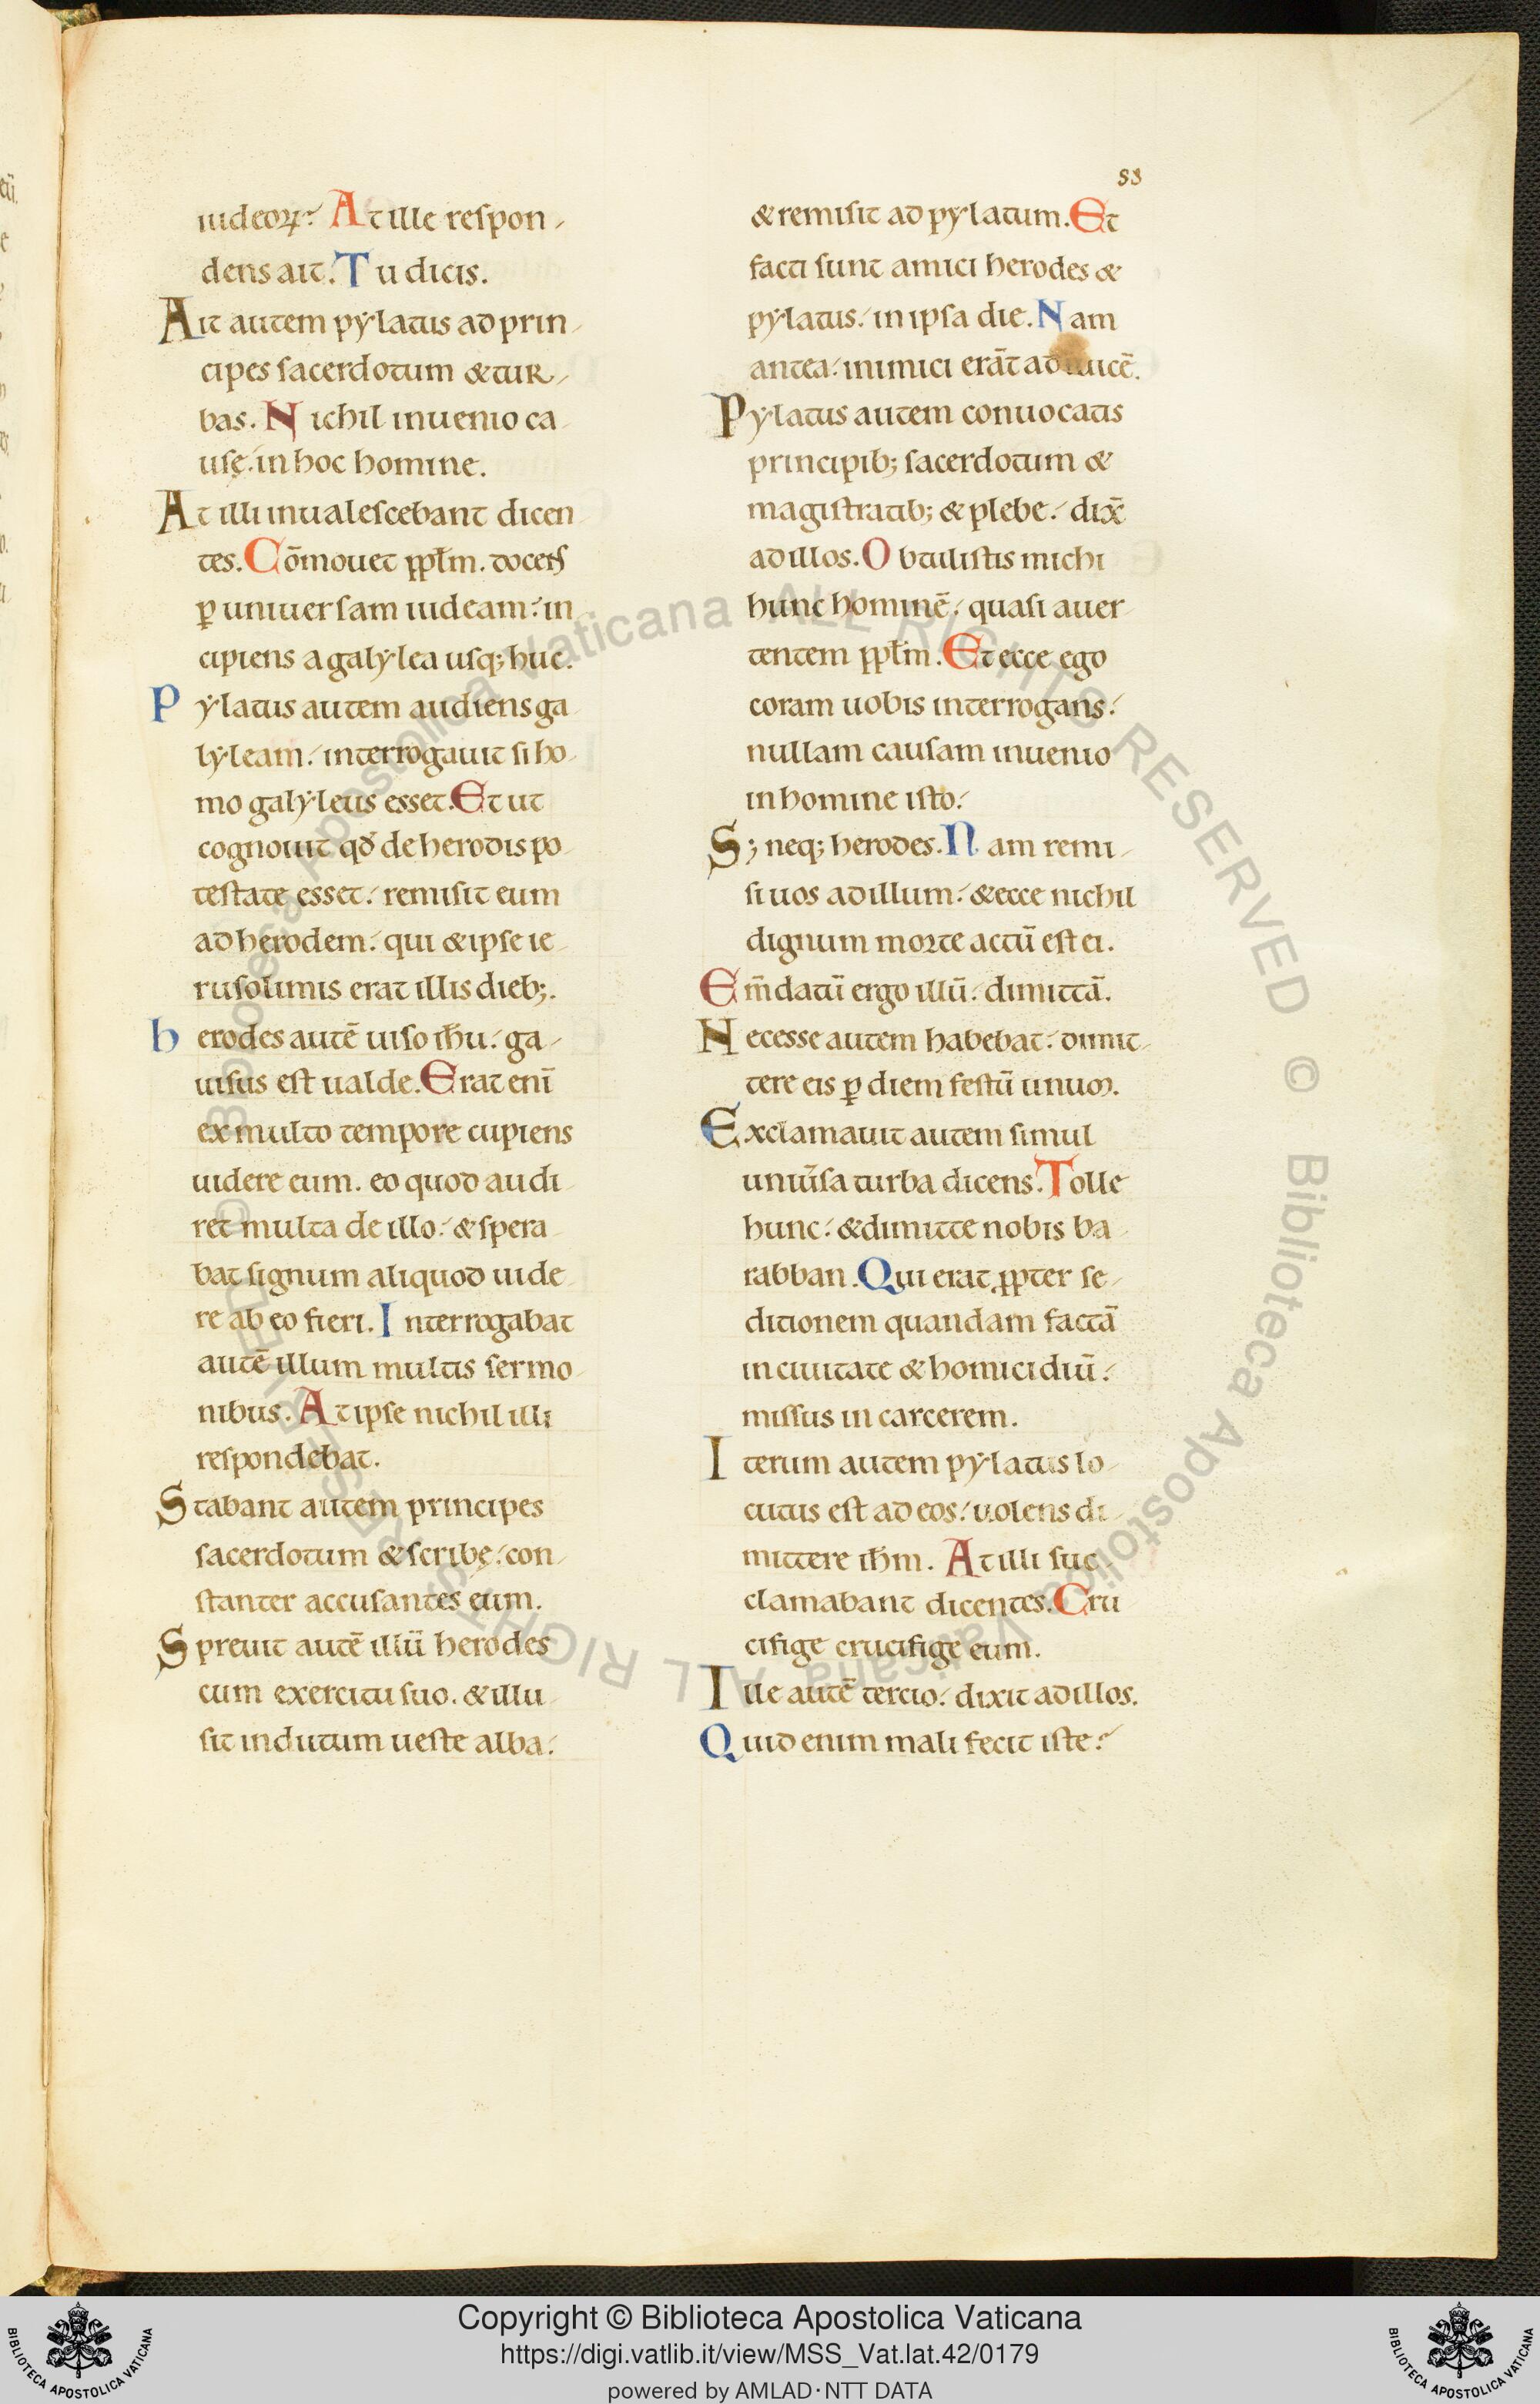 53
iudeoꝝ? At ille respon-
dens ait. Tu dicis.
Ait autem pylatus ad prin-
cipes sacerdotum & tur-
bas. Nichil inuenio ca-
usę in hoc homine.
At illi inualescebant dicen-
tes. Cōmouet ppl̄m. docens
ꝑ uniuersam iudeam: in-
cipiens a galylea usq; huc.
Pylatus autem audiens ga-
lyleam: interrogauit si ho-
mo galyleus esset. Et ut
cognouit qđ de herodis po-
testate esset: remisit eum
ad herodem: qui & ipse ie-
rusolimis erat illis dieb;.
herodes autē uiso ih̄u: ga-
uisus est ualde. Erat enī
ex multo tempore cupiens
uidere eum. eo quod audi-
ret multa de illo: & spera-
bat signum aliquod uide-
re ab eo fieri. Interrogabat
autē illum multis sermo-
nibus. At ipse nichil illi
respondebat.
Stabant autem principes
sacerdotum & scribę: con-
stanter accusantes eum.
Spreuit autē illū herodes
cum exercitu suo. & illu-
sit indutum ueste alba:
& remisit ad pylatum. Et
facti sunt amici herodes &
pylatus: in ipsa die. Nam
antea: inimici erāt ad inuicē.
Pylatus autem conuocatis
principib; sacerdotum &
magistratib; & plebe: dix̄
ad illos. Obtulistis michi
hunc hominē: quasi auer-
tentem ppl̄m. Et ecce ego
coram uobis interrogans:
nullam causam inuenio
in homine isto:
S; neq; herodes. Nam remi-
si uos ad illum: & ecce nichil
dignum morte actū est ei.
Em̄datū ergo illū: dimittā.
Necesse autem habebat: dimit-
tere eis ꝑ diem festū unum.
Exclamauit autem simul
uniu̅sa turba dicens. Tolle
hunc: & dimitte nobis ba-
rabban. Qui erat ꝓpter se-
ditionem quandam factā
in ciuitate & homicidiū:
missus in carcerem.
Iterum autem pylatus lo-
cutus est ad eos: uolens di-
mittere ih̄m. At illi suc-
clamabant dicentes. Cru-
cifige crucifige eum.
Ille autē tercio: dixit ad illos.
Quid enim mali fecit iste?
© Biblioteca Apostolica Vaticana ALL RIGHTS RESERVED © Biblioteca Apostolica Vaticana ALL RIGHTS RESERVED
Copyright © Biblioteca Apostolica Vaticana
https://digi.vatlib.it/view/MSS_Vat.lat.42/0179
powered by AMLAD·NTT DATA
BIBLIOTECA APOSTOLICA VATICANA
BIBLIOTECA APOSTOLICA VATICANA